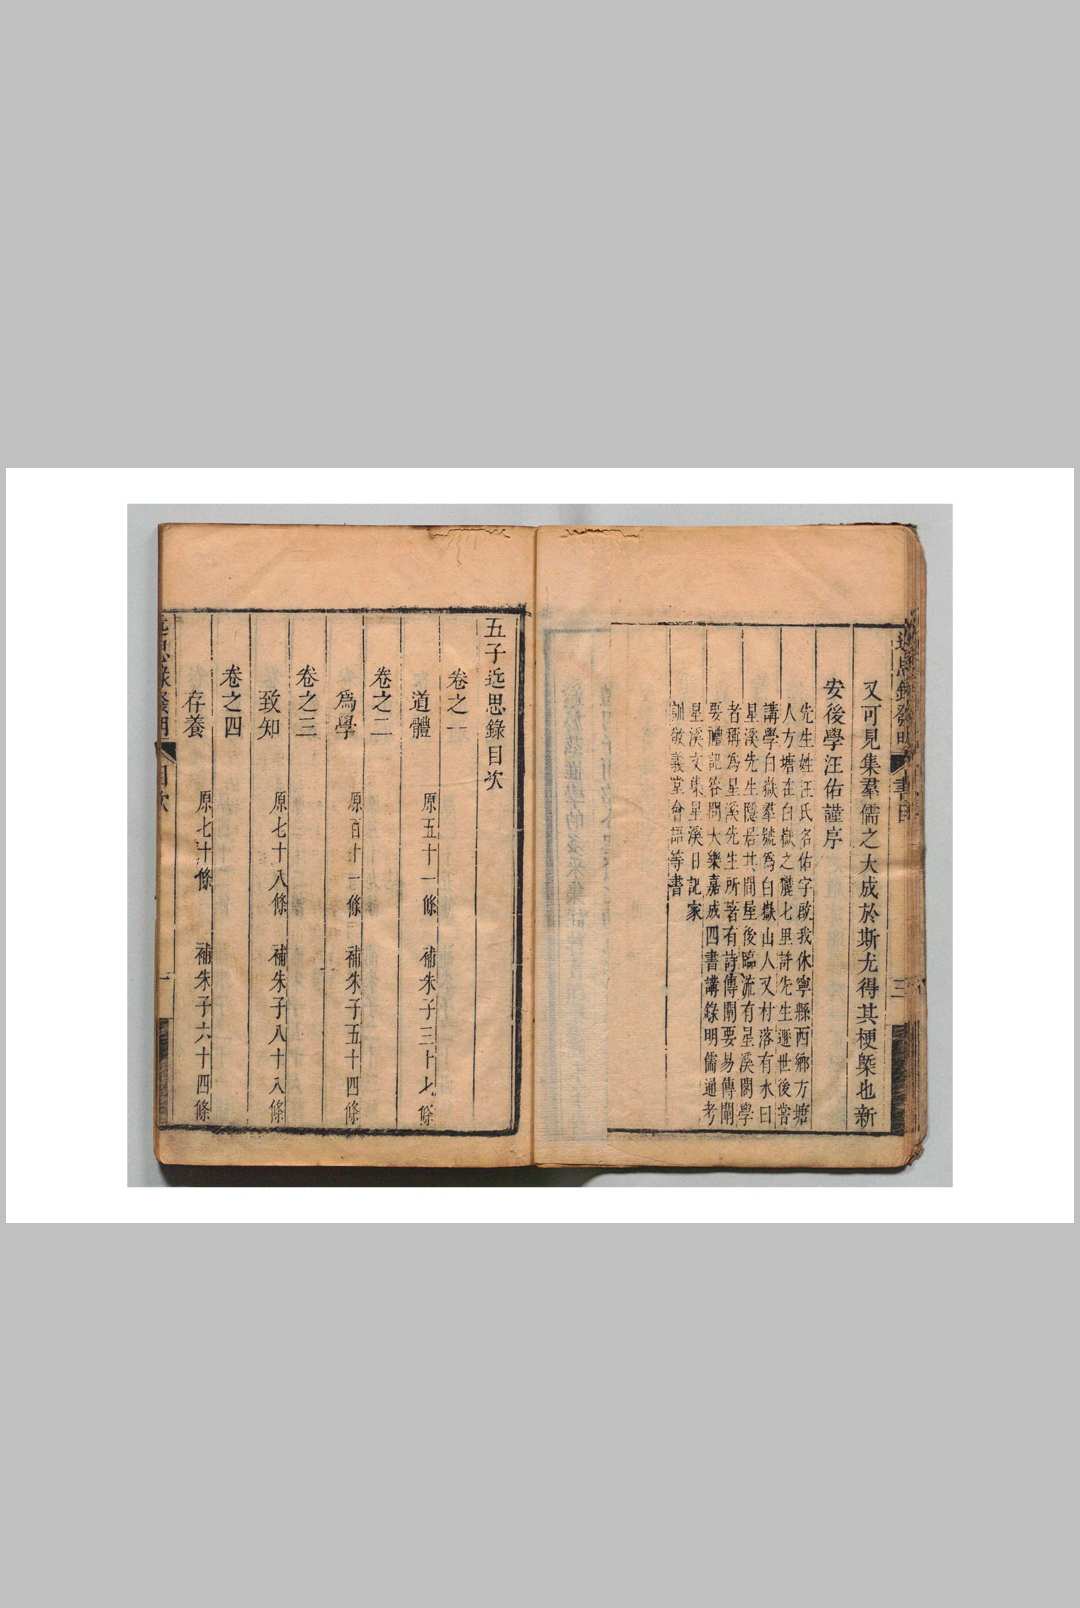 又可見集羣儒之大成於斯尤得其梗槩也新
安後學汪佑謹序
先生姓汪氏名佑字啟我休寧縣西鄉方塘
人方塘在白嶽之麓七里許先生遯世後嘗
講學白嶽羣號為白嶽山人又村落有水曰
星溪先生隱居其間屋後臨流有星溪閣學
者稱為星溪先生所著有詩傳闡要易傳闡
要禮記答問大樂嘉成四書講錄明儒通考
星溪文集星溪日記家
訓敬義堂會語等書
書目
三
五子近思錄目次
卷之一
道體
原五十一條
補朱子三十七條
卷之二
爲學
原百十一條
補朱子五十四條
卷之三
致知
原七十八條
補朱子八十八條
卷之四
存養
原七十條
補朱子六十四條